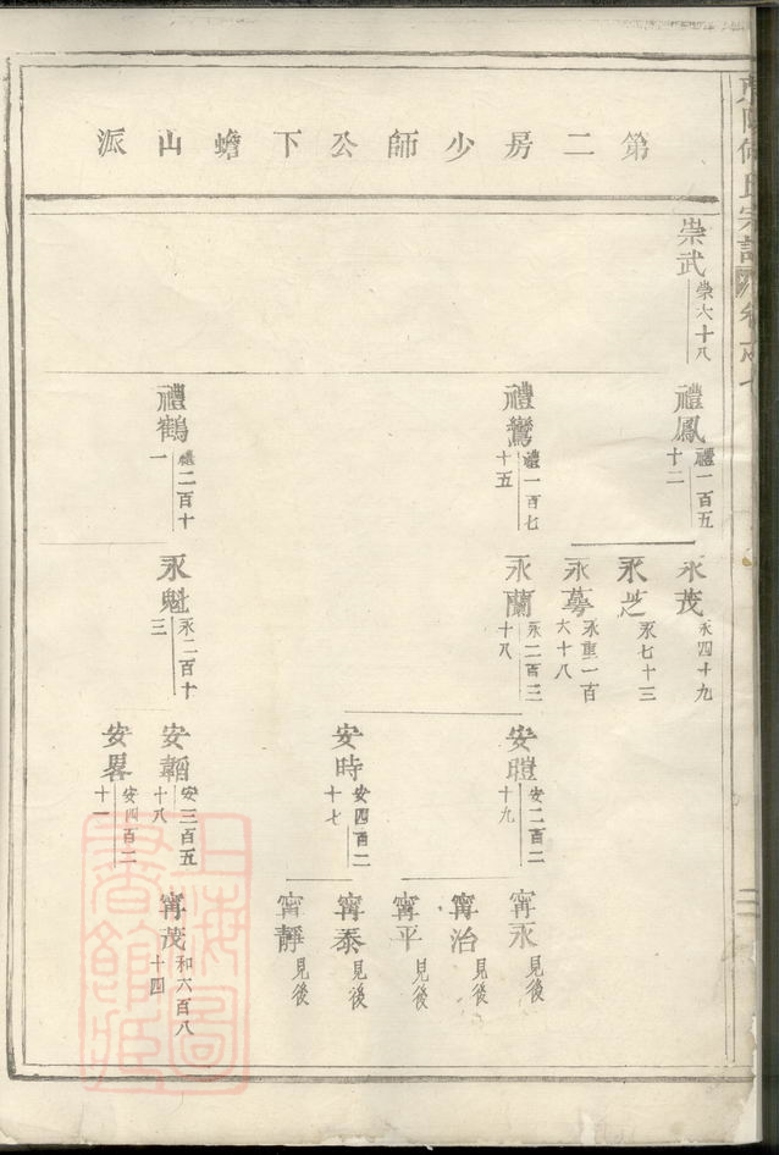 第二房少師公下蟾山派
崇武
崇六十八
禮鳳
禮一百五十二
禮鸞
禮一百七十五
禮鶴
禮二百十一
永茂
永四十九
永芝
永七十三
永蕚
永重一百六十八
永蘭
永二百三十八
永魁
永二百十三
安暟
安二百二十九
安時
安四百二十七
安韜
安三百五十八
安畧
安四百二十一
甯永
見後
甯治
見後
甯平
見後
甯泰
見後
甯靜
見後
甯茂
和六百八十四
上海圖書館藏